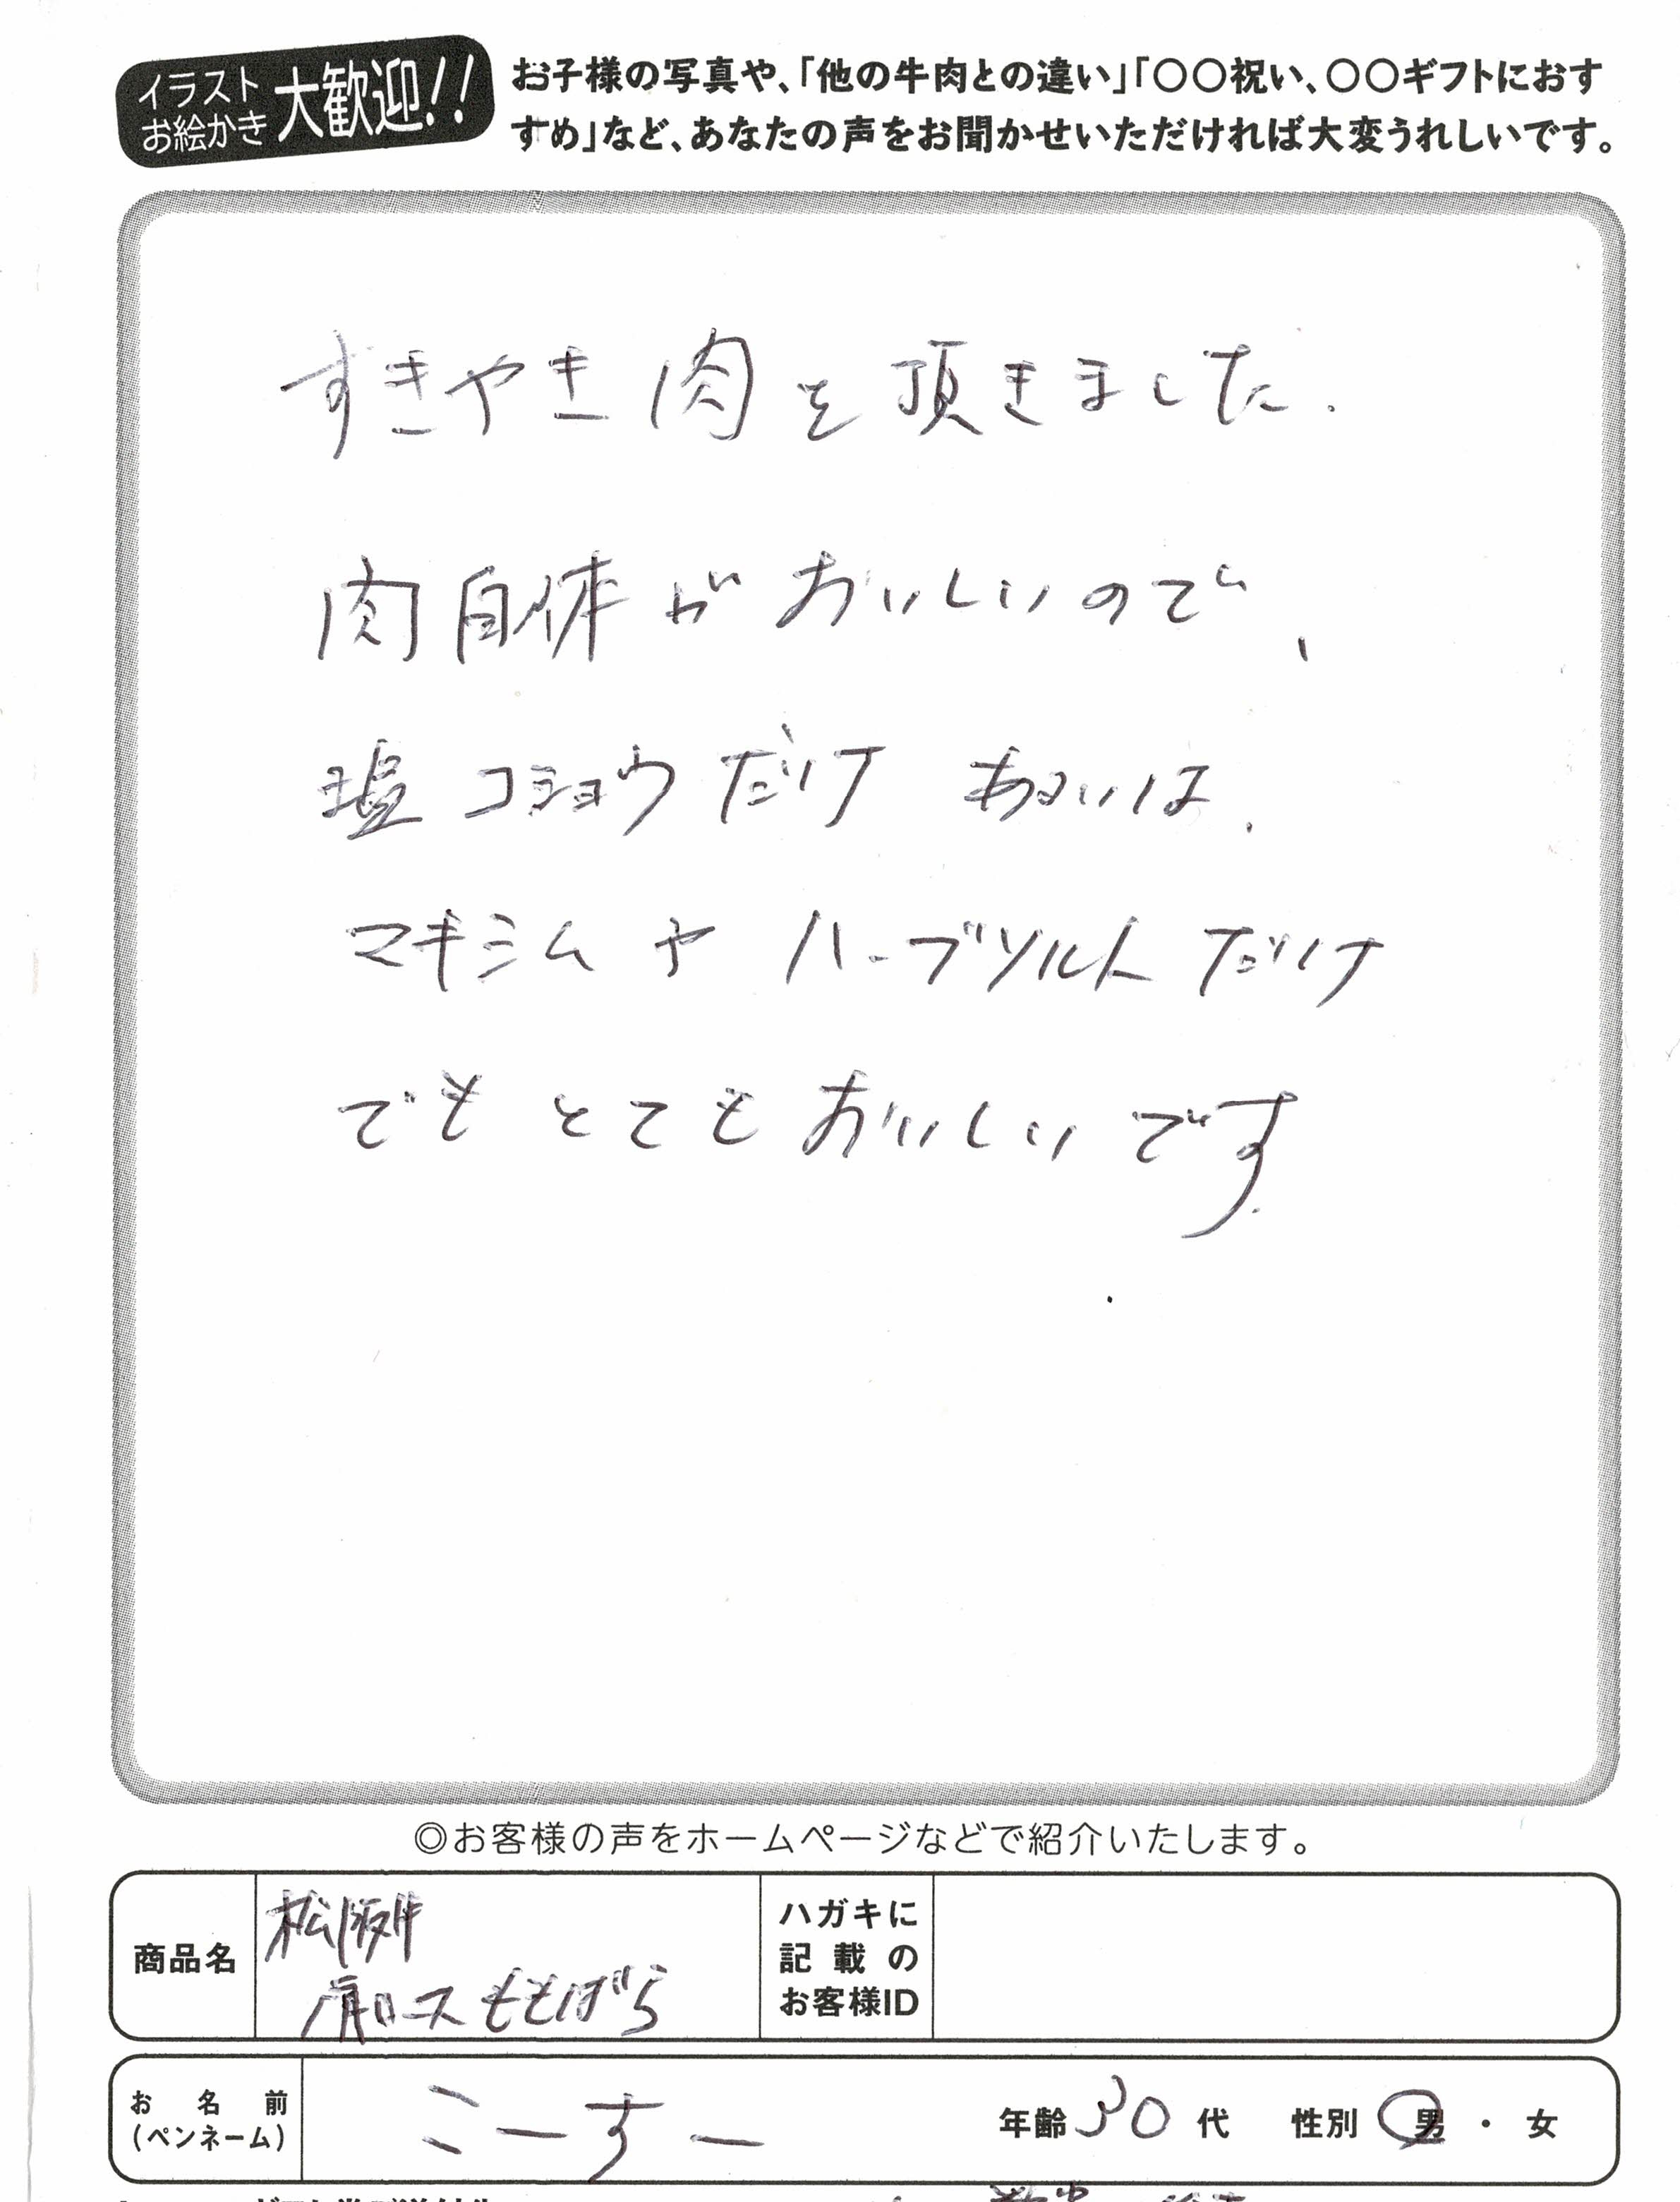 イラスト
お絵かき
大歓迎!!
お子様の写真や、「他の牛肉との違い」「〇〇祝い、〇〇ギフトにおす
すめ」など、あなたの声をお聞かせいただければ大変うれしいです。
すきやき肉を頂きました.
肉自体がおいしいので、
塩コショウだけ あるいは.
マキシムや ハーブソルトだけ
でも とても おいしいです.
◎お客様の声をホームページなどで紹介いたします。
商品名
松阪牛
肩ロースももばら
ハガキに
記載の
お客様ID
お名前
(ペンネーム)
こーすー
年齢 30 代 性別 男 ・ 女